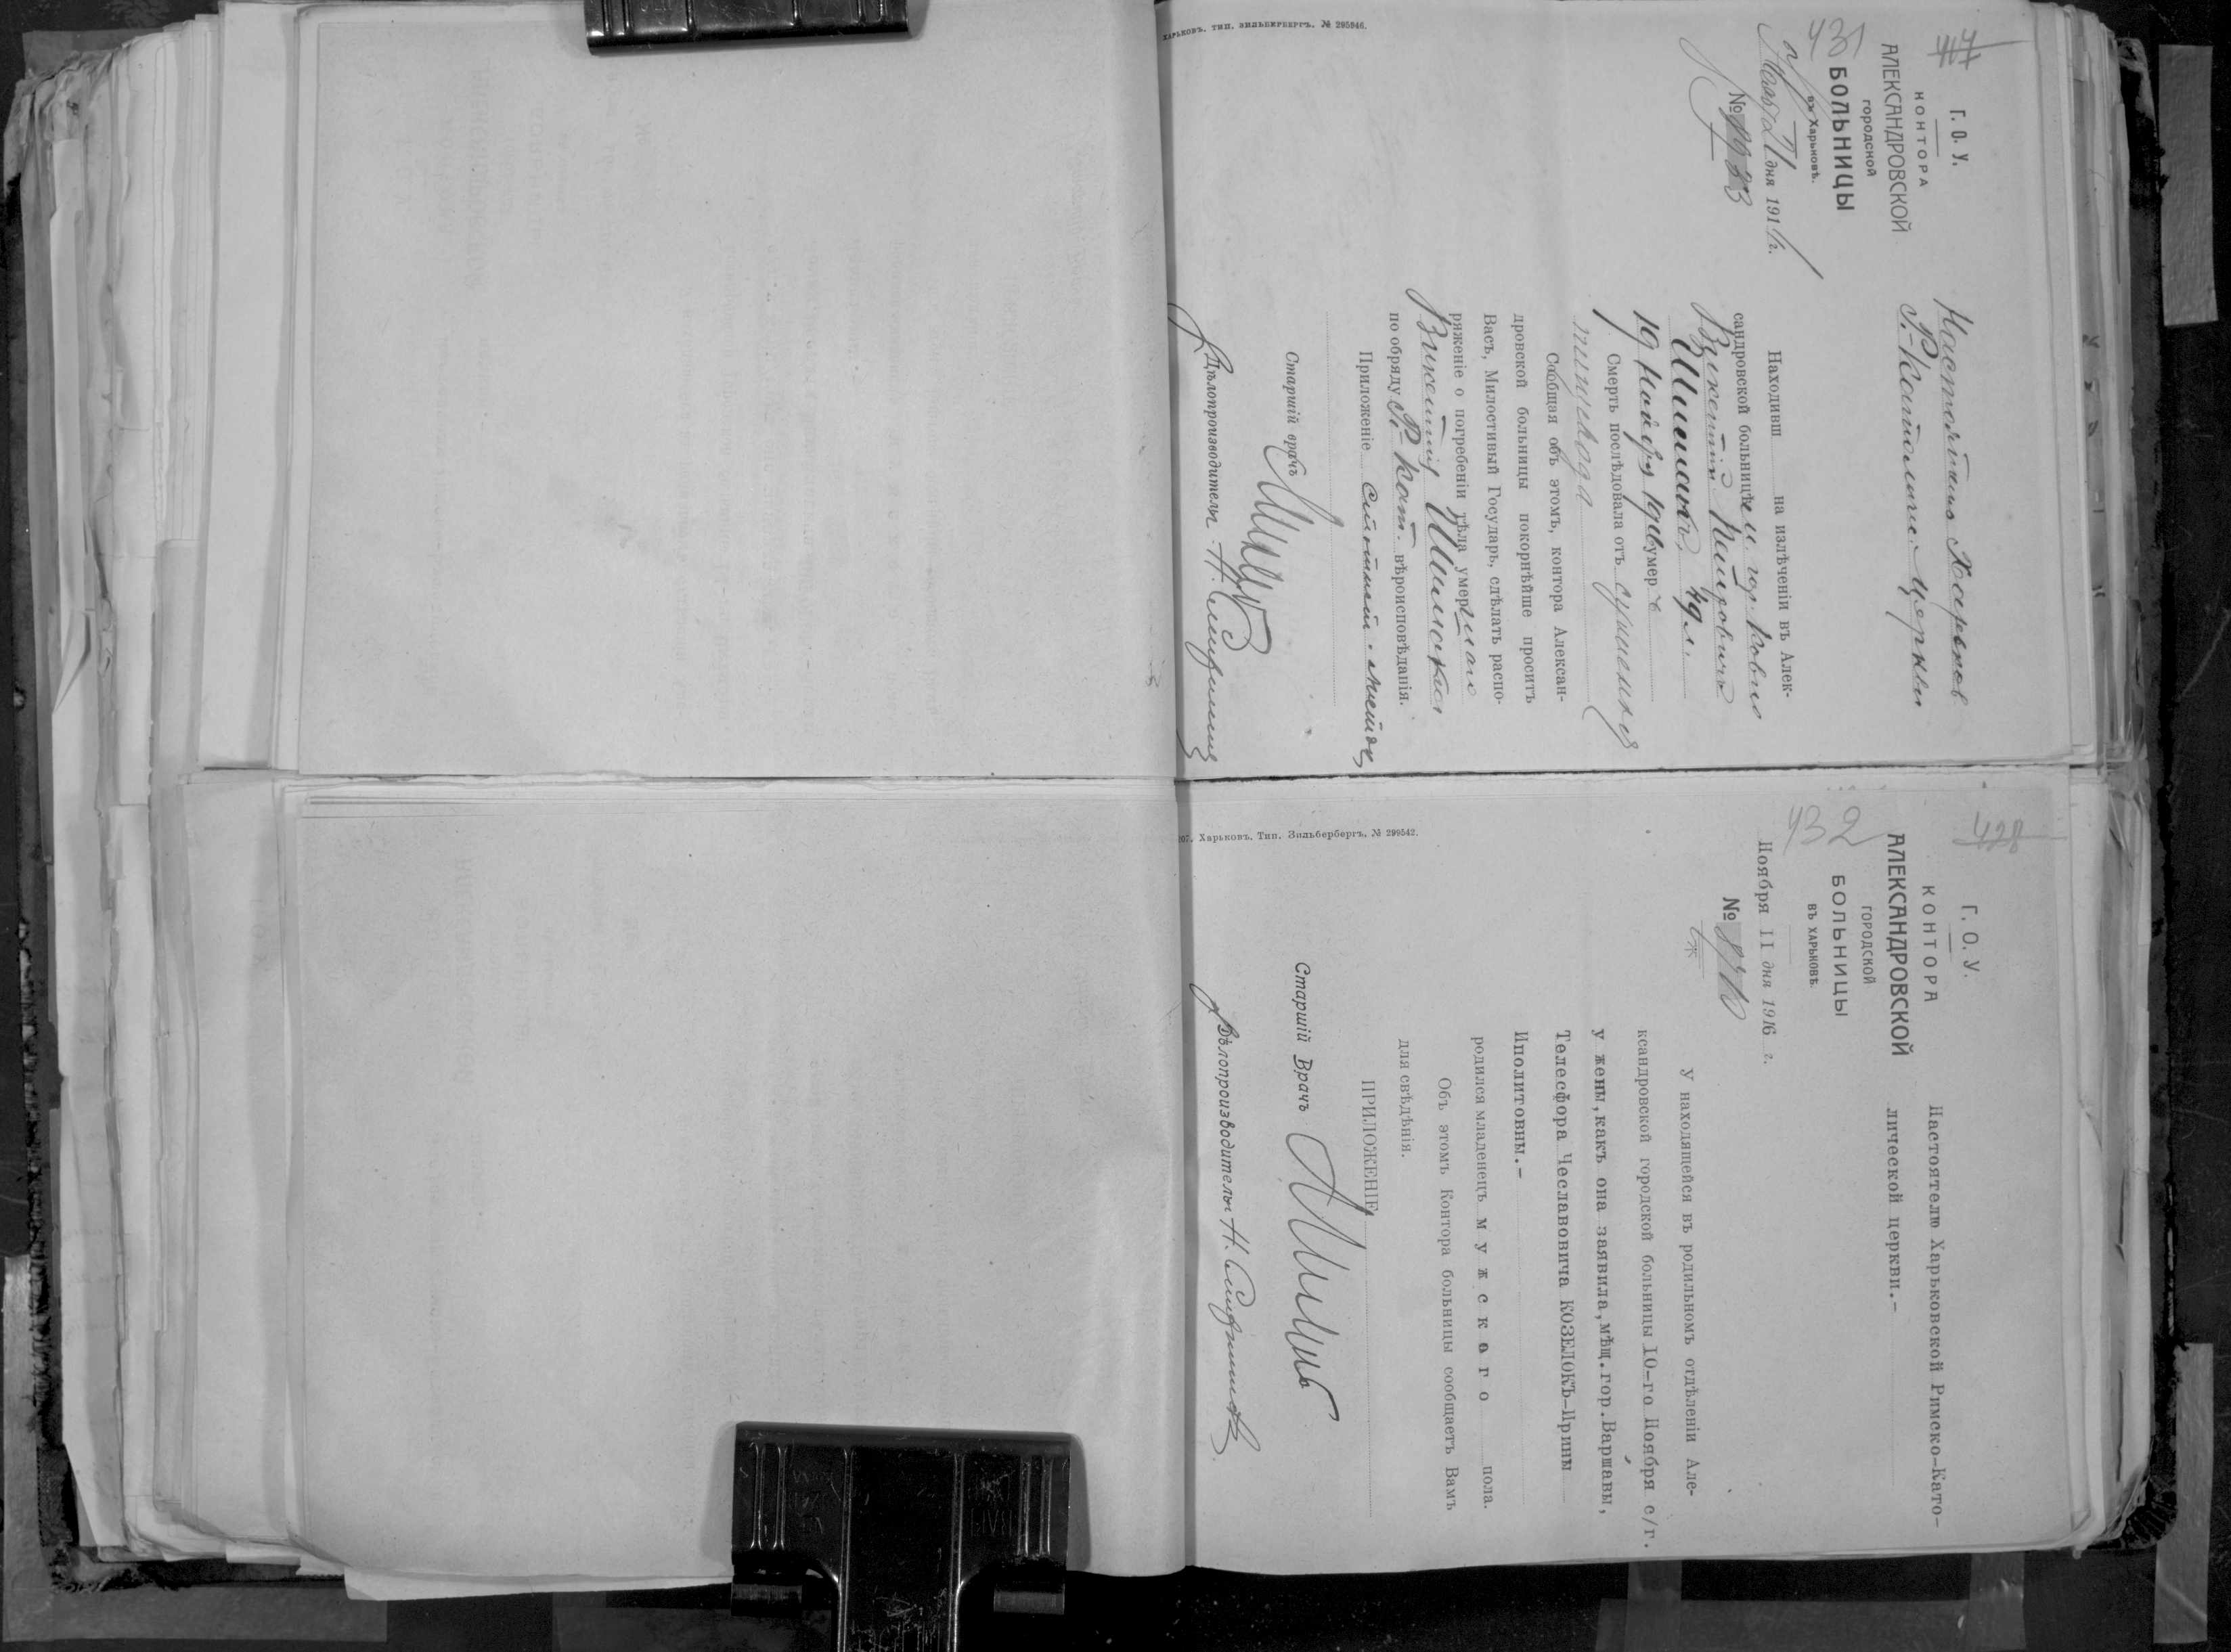 447
431
Г. О. У.
КОНТОРА
АЛЕКСАНДРОВСКОЙ
ГОРОДСКОЙ
БОЛЬНИЦЫ
въ Харьковѣ.
21 дня 191 г.
№
Настоятелю Харьков
Р.-Католич. церкви
Находивш на излѣченіи въ Алек-
сандровской больницѣ гор. Ковно
Викентій
Шимского, 49 л.
19 Ноября умеръ
Смерть послѣдовала отъ суженія
пищевода
Сообщая объ этомъ, контора Алексан-
дровской больницы покорнѣйше проситъ
Васъ, Милостивый Государь, сдѣлать распо-
ряженіе о погребеніи тѣла умершаго
Викентія
по обряду Р.-Кат. вѣроисповѣданія.
Приложеніе
Старшій врачъ
Дѣлопроизводитель Н.
ХАРЬКОВЪ. ТИП. ЗИЛЬБЕРБЕРГЪ. № 295946.
428
432
Г. О. У.
КОНТОРА
АЛЕКСАНДРОВСКОЙ
ГОРОДСКОЙ
БОЛЬНИЦЫ
ВЪ ХАРЬКОВѢ.
Ноября 11 дня 1916 г.
№
Настоятелю Харьковской Римско-Като-
лической церкви.-
У находящейся въ родильномъ отдѣленіи Але-
ксандровской городской больницы 10-го Ноября с/г.
у жены, какъ она заявила, мѣщ. гор. Варшавы,
Телесфора Чеславовича КОЗЕЛОКЪ-Ирины
Иполитовны.-
родился младенецъ мужского пола.
Объ этомъ Контора больницы сообщаетъ Вамъ
для свѣдѣнія.
ПРИЛОЖЕНІЕ
Старшій Врачъ
Дѣлопроизводитель Н.
107. Харьковъ. Тип. Зильбербергъ. № 299542.